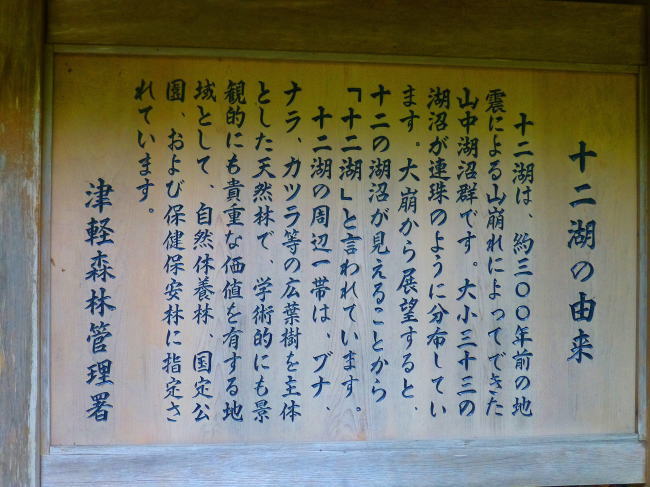 十二湖の由来
十二湖は、約三〇〇年前の地
震による山崩れによってできた
山中湖沼群です。大小三十三の
湖沼が連珠のように分布してい
ます。大崩から展望すると、
十二の湖沼が見えることから
「十二湖」と言われています。
十二湖の周辺一帯は、ブナ、
ナラ、カツラ等の広葉樹を主体
とした天然林で、学術的にも景
観的にも貴重な価値を有する地
域として、自然休養林、国定公
園、および保健保安林に指定さ
れています。
津軽森林管理署